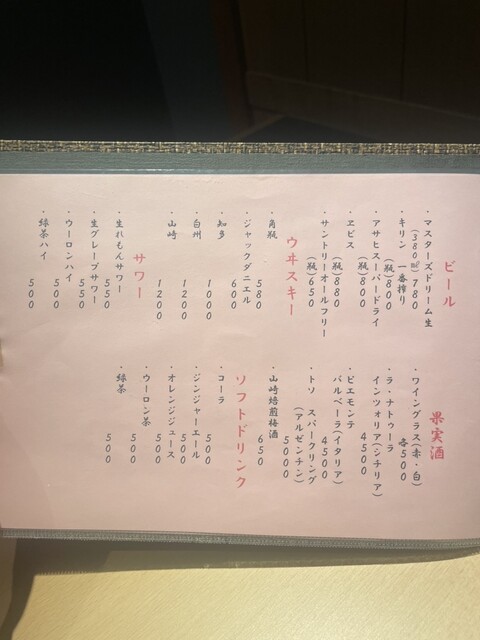 ビール
・マスターズドリーム生
(380㎖) 780
・キリン 一番搾り
(瓶) 800
・アサヒスーパードライ
(瓶) 800
・ヱビス
(瓶) 880
・サントリーオールフリー
(瓶) 650
ウヰスキー
・角瓶
580
・ジャックダニエル
600
・知多
1000
・白州
1200
・山崎
1200
サワー
・生れもんサワー
550
・生グレープサワー
550
・ウーロンハイ
500
・緑茶ハイ
500
果実酒
・ワイングラス(赤・白)
各500
・ラ・ナトゥーラ
インツォリア(シチリア)
4500
・ピエモンテ
バルベーラ(イタリア)
4500
・トソ スパークリング
(アルゼンチン)
5000
・山崎焙煎梅酒
650
ソフトドリンク
・コーラ
500
・ジンジャーエール
500
・オレンジジュース
500
・ウーロン茶
500
・緑茶
500